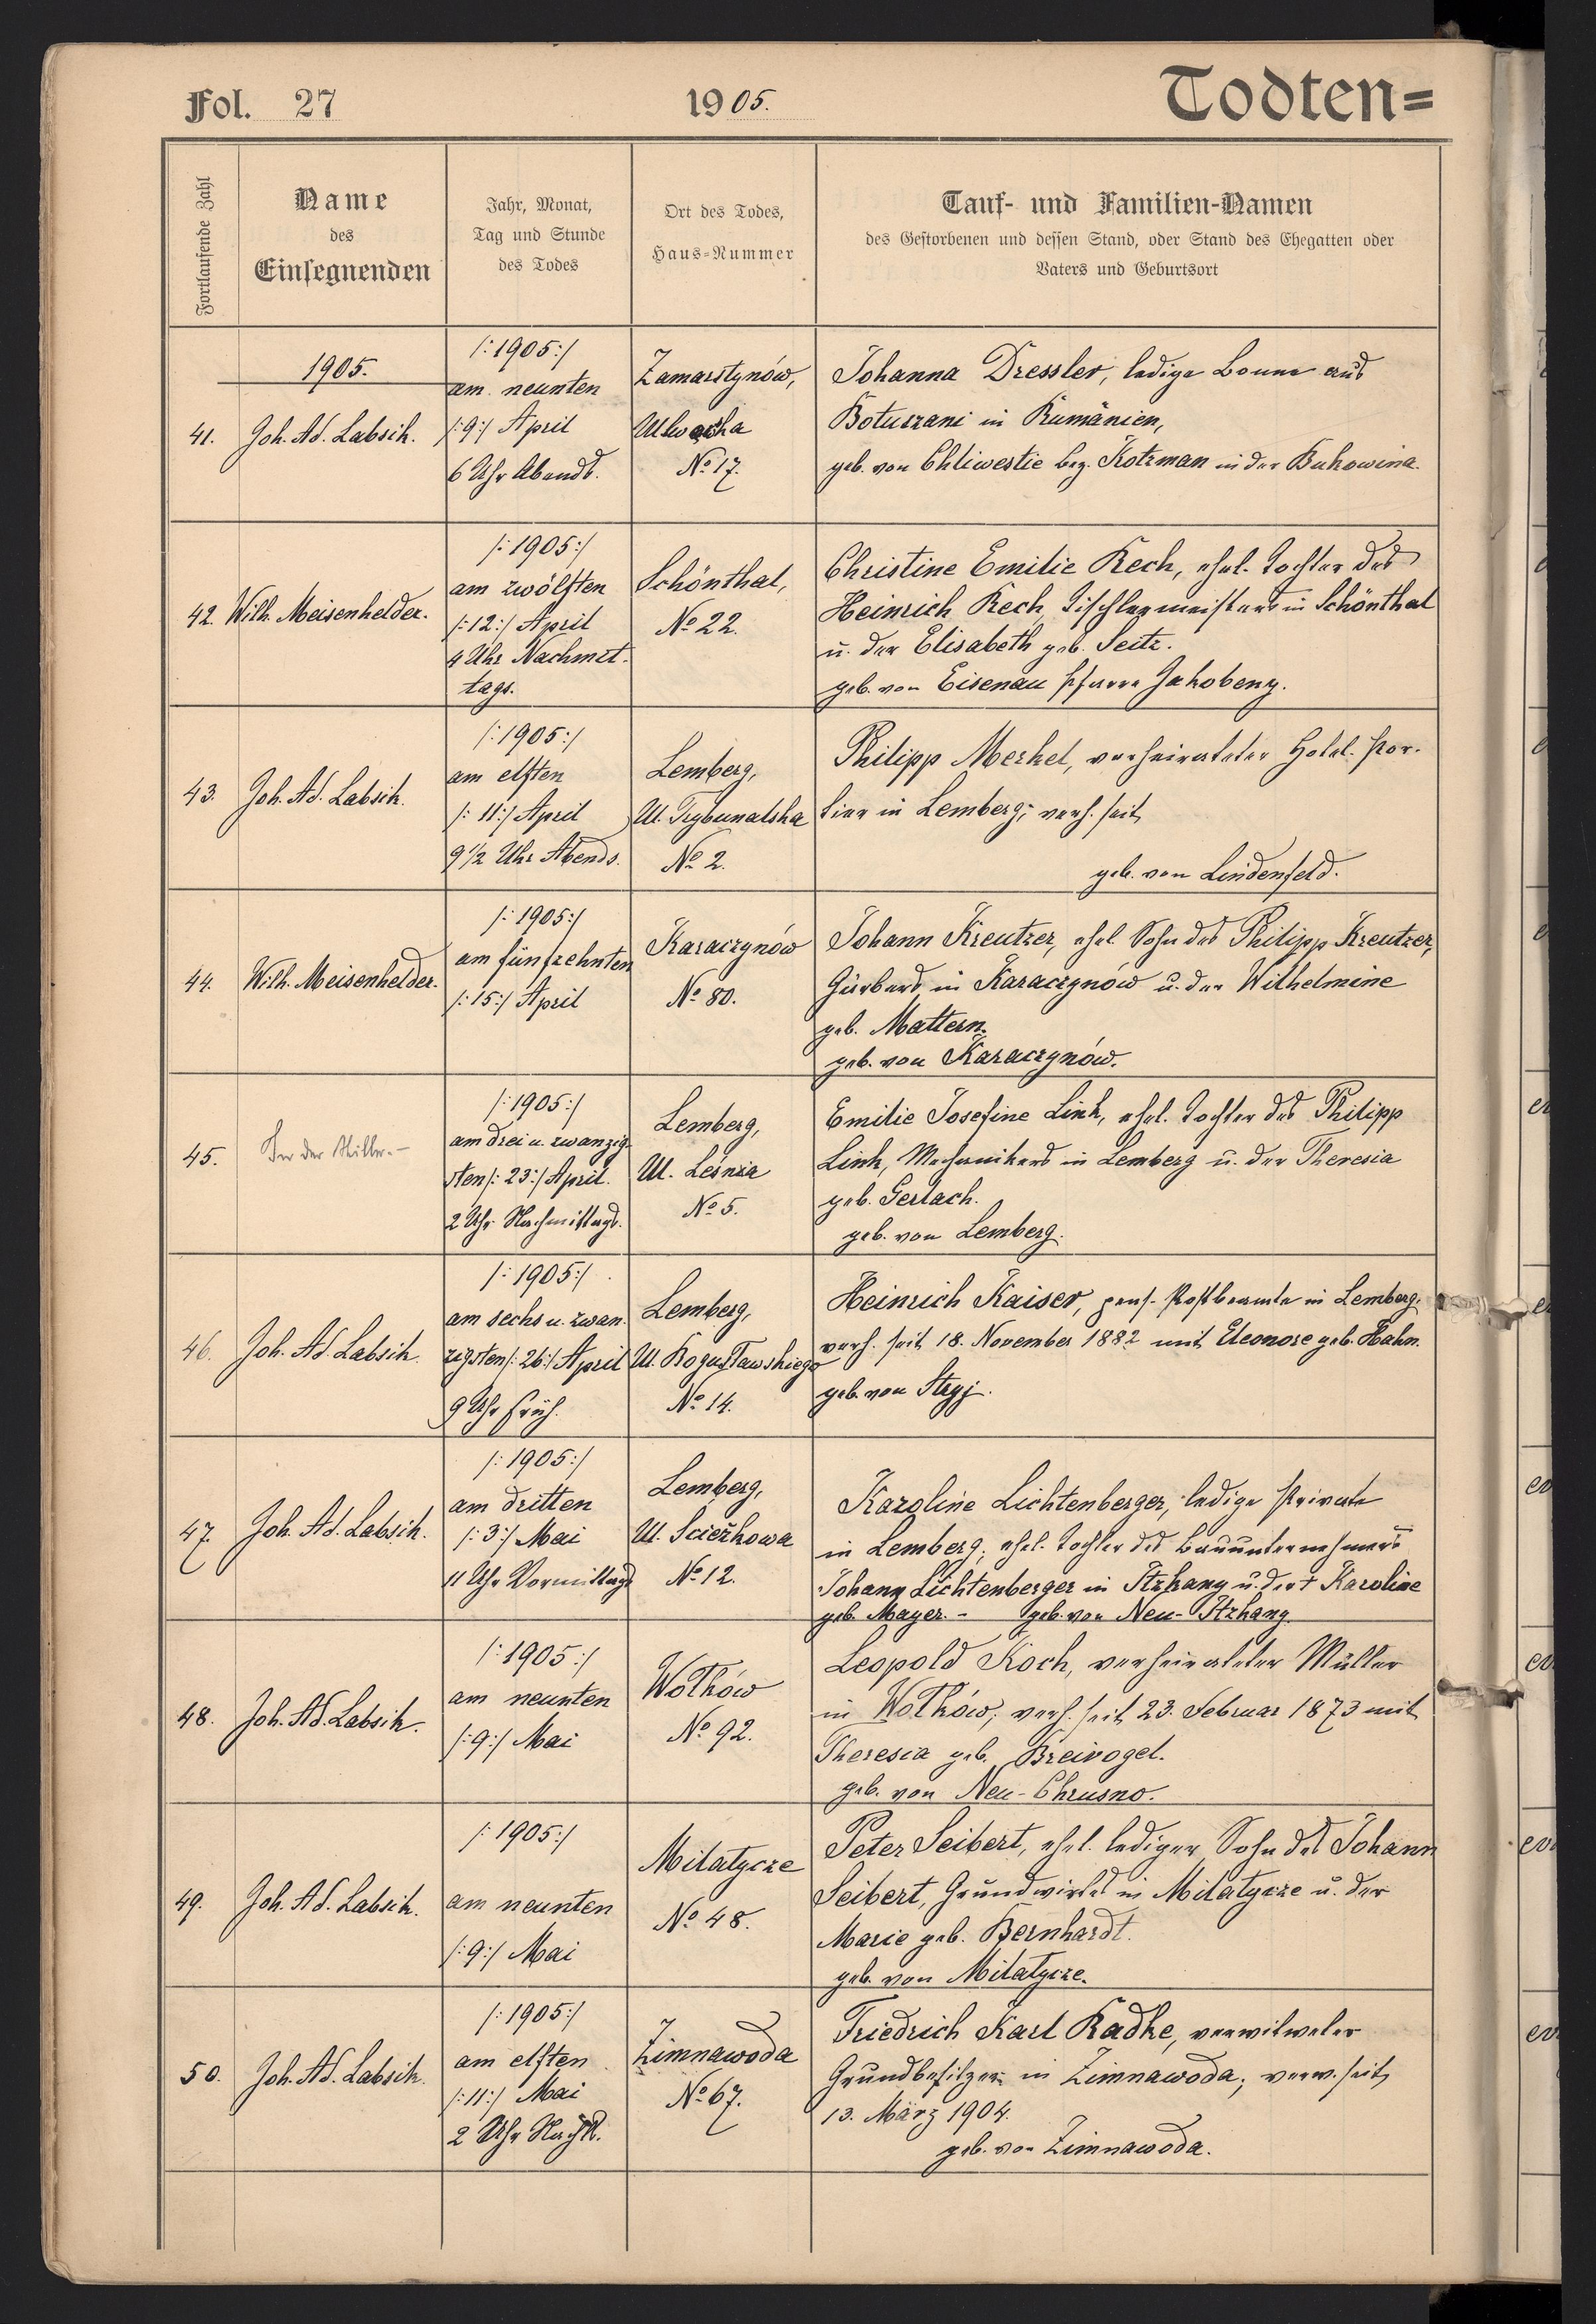 Fol. 27
1905.
Todten=
Fortlaufende Zahl
Name
des
Einsegnenden
Jahr, Monat,
Tag und Stunde
des Todes
Ort des Todes,
Haus-Nummer
Tauf- und Familien-Namen
des Gestorbenen und dessen Stand, oder Stand des Ehegatten oder
Vaters und Geburtsort
1905.
41.
Joh. Ad. Labsik.
/:1905:/
am neunten
/:9:/ April
6 Uhr Abends.
Zamarstynów,
No 17.
Johanna Dressler, ledige Bonne aus
Botuszani in Rumänien,
geb. von Chliwestie bez. Kotzman in der Bukowina.
42.
Wilh. Meisenhelder.
/:1905:/
am zwölften
/:12:/ April
4 Uhr Nachmit-
tags.
Schönthal,
No 22.
Christine Emilie Rech, ehel. Tochter des
Heinrich Rech, Tischlermeisters in Schönthal
u. der Elisabeth geb. Seitz.
geb. von Eisenau Pfarre Jakobeny.
43.
Joh. Ad. Labsik.
/:1905:/
am elften
/:11:/ April
9 1/2 Uhr Abends.
Lemberg,
Ul. Trybunalska
No 2.
Philipp Merkel, verheirateter Hotel-Por-
tier in Lemberg; verh. seit
geb. von Lindenfeld.
44.
Wilh. Meisenhelder.
/:1905:/
am fünfzehnten
/:15:/ April
Karaczynów
No 80.
Johann Kreutzer, ehel. Sohn des Philipp Kreutzer,
in Karaczynów u. der Wilhelmine
geb. Mattern.
geb. von Karaczynów.
45.
In der Stille.-
/:1905:/
am drei u. zwanzig-
sten /:23:/ April.
2 Uhr Nachmittags.
Lemberg,
Ul. Leśnia
No 5.
Emilie Josefine Link, ehel. Tochter des Philipp
Link, Mechanikers in Lemberg u. der Theresia
geb. Gerlach.
geb. von Lemberg.
46.
Joh. Ad. Labsik.
/:1905:/
am sechs u. zwan-
zigsten /:26:/ April
9 Uhr früh.
Lemberg,
Ul. Bogusławskiego
No 14.
Heinrich Kaiser, pens. Postbeamte in Lemberg,
verh. seit 18. November 1882 mit Eleonore geb. Hahn.
geb. von Stryj.
47.
Joh. Ad. Labsik.
/:1905:/
am dritten
/:3:/ Mai
11 Uhr Vormittags
Lemberg,
Ul. Scieżkowa
No 12.
Karoline Lichtenberger, ledige Private
in Lemberg, ehel. Tochter des Bauunternehmers
Johann Lichtenberger in Itzkany u. der + Karoline
geb. Mayer. - geb. von Neu-Itzkany
48.
Joh. Ad. Labsik.
/:1905:/
am neunten
/:9:/ Mai
Wołków
No 92.
Leopold Koch, verheirateter Müller
in Wołków, verh. seit 23. Februar 1873 mit
Theresia geb. Breivogel.
geb. von Neu-Chrusno.
49.
Joh. Ad. Labsik.
/:1905:/
am neunten
/:9:/ Mai
Milatycze
No 48.
Peter Seibert, ehel. lediger Sohn des Johann
Seibert, Grundwirtes in Milatycze u. der
Marie geb. Bernhardt.
geb. von Milatycze.
50.
Joh. Ad. Labsik.
/:1905:/
am elften
/:11:/ Mai
2 Uhr
Zimnawoda
No 67.
Friedrich Karl Radke, verwitweter
Grundbesitzer in Zimnawoda; verw. seit
13. März 1904.
geb. von Zimnawoda.